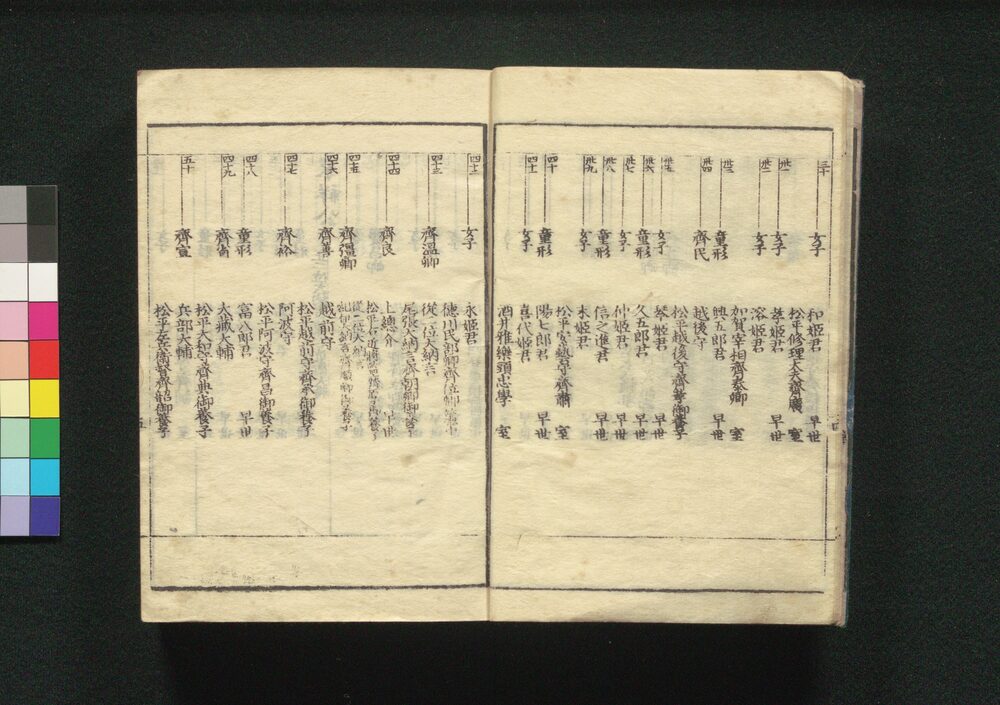 三十 女子 和姫君 早世
松平修理大夫齊廣 室
卅一 女子 孝姫君 早世
卅二 女子 溶姫君
加賀宰相齊泰卿 室
卅三 童形 五郎君 早世
卅四 齊民 越後守
松平越後守齊孳御養子
卅五 女子 琴姫君 早世
卅六 童形 久五郎君 早世
卅七 女子 仲姫君 早世
卅八 童形 信之進君 早世
卅九 女子 末姫君
松平安藝守齊肅 室
四十 童形 陽七郎君 早世
四十一 女子 喜代姫君
酒井雅樂頭忠學 室
四十二 女子 永姫君
徳川民部卿齊位卿簾中
四十三 齊温卿 從二位大納言
尾張大納言齊朝卿御養子
四十四 齊良 上總介 早世
松平右近將監齊厚養子
四十五 齊彊卿 從二位大納言
紀伊大納言齊順卿御養子
四十六 齊善 越前守
松平越前守齊承御養子
四十七 齊裕 阿波守
松平阿波守齊昌御養子
四十八 童形 富八郎君 早世
四十九 齊省 大藏大輔
松平大和守齊典御養子
五十 齊宣 兵部大輔
松平左兵衛督齊韶御養子